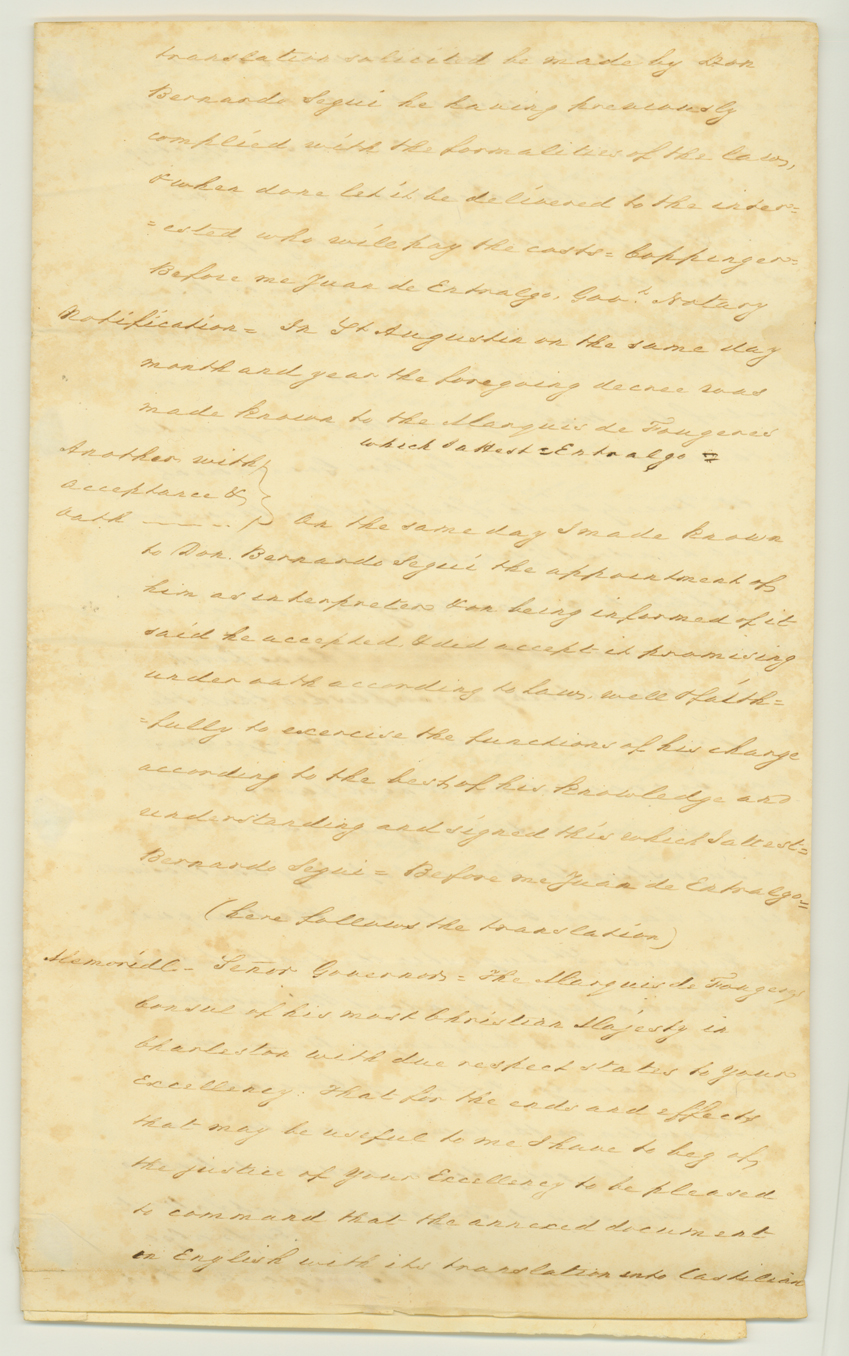 translation solicited be made by Don
Bernardo Segui he having previously
complied with the formalities of the law,
& when done let it be delivered to the inter=
=ested who will pay the costs = Coppinger=
Before me Juan de Entralgo, Govt. Notary
Notification = In St Augustin on the same day
month and year the foregoing decree was
made known to the Marquis de Fougeres
which I attest = Entralgo =
Another with
acceptance &
Oath
On the same day I made known
to Don. Bernardo Segui the appointment of
him as interpreter & on being informed of it
said he accepted & did accept it promising
under oath according to law, well & faith=
=fully to exercise the functions of his charge
according to the best of his knowledge and
understanding and signed this which I attest=
Bernardo Segui = Before me Juan de Entralgo=
(here follows the translation)
Memorial - Señor Governor = The Marquis de Fougeres
Consul of his most Christian Majesty in
Charleston with due respect states to your
Excellency: That for the ends and effects
that may be useful to me I have to beg of
the justice of your Excellency to be pleased
to command that the annexed document
in English with its translation into Castilian